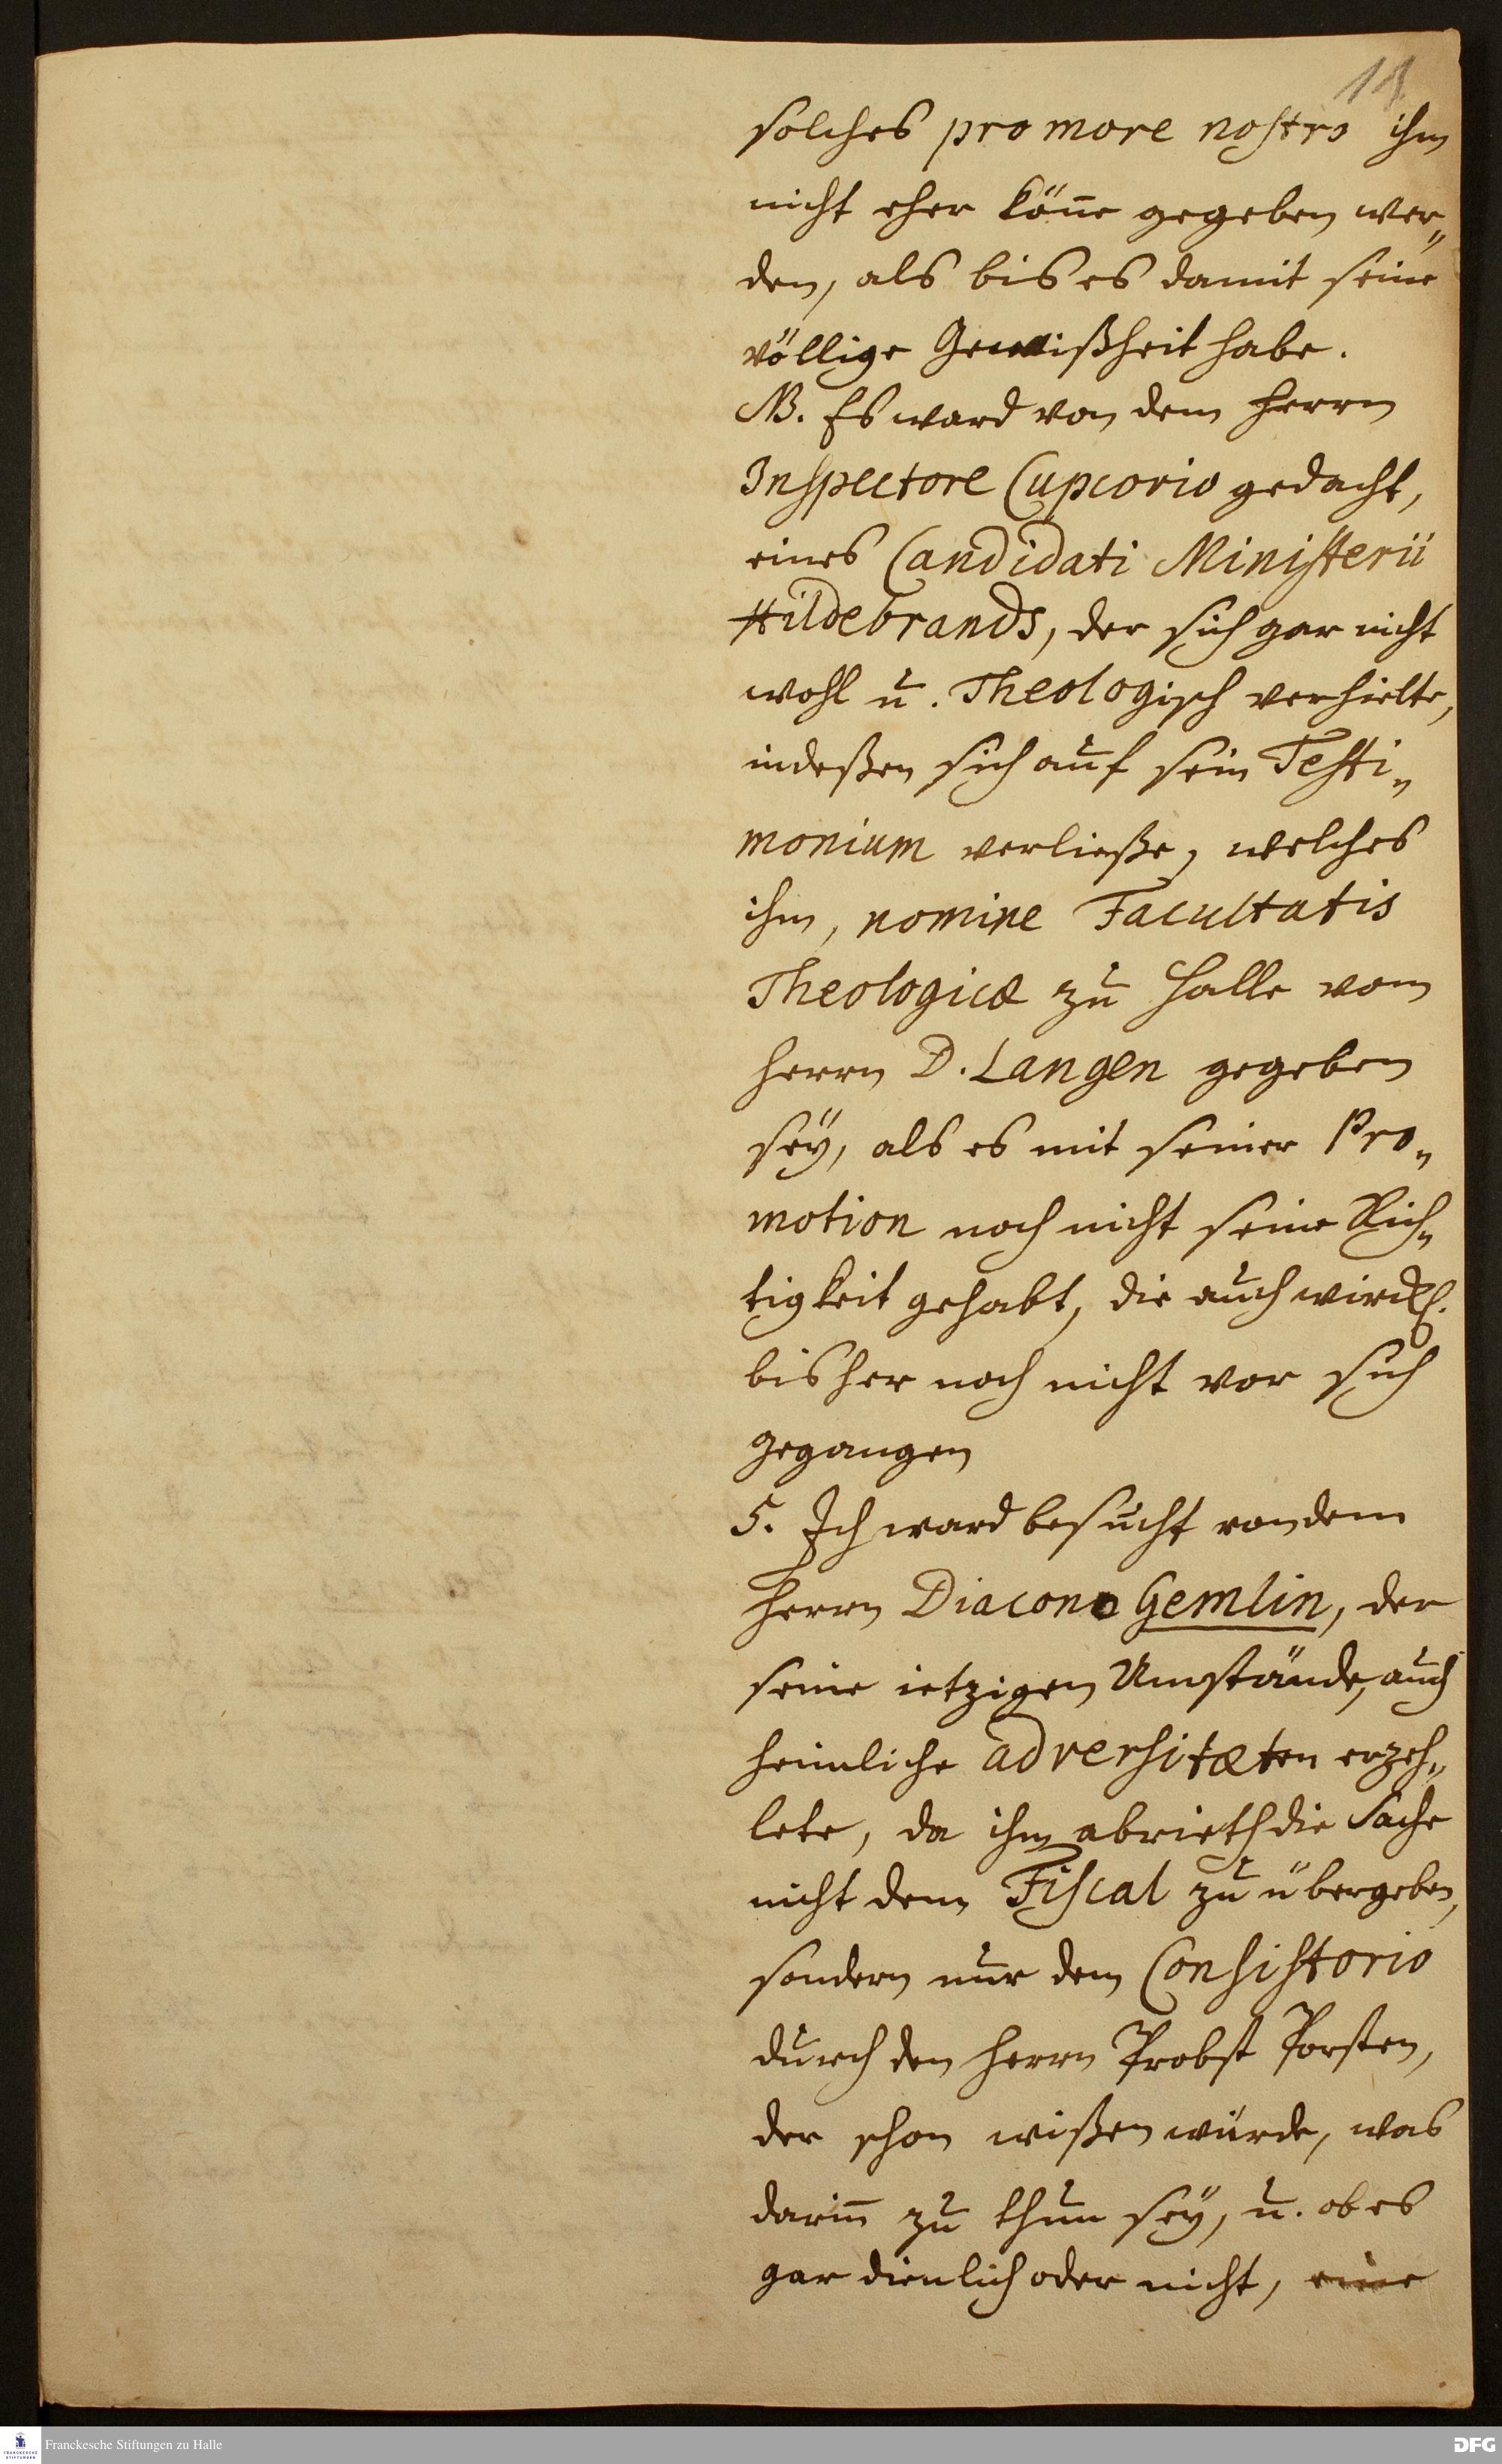 11
solches pro more nostro ihm
nicht eher köñe gegeben wer„
den, als bis es damit seine
völlige Gewißheit habe.
NB. Es ward von dem Herrn
Inspectore Cupcovio gedacht,
eines Candidati Ministerii
Hildebrands, der sich gar nicht
wohl u. Theologisch verhielte,
indeßen sich auf sein Testi„
monium verließe, welches
ihm, nomine Facultatis
Theologicæ zu Halle vom
Herrn D. Langen gegeben
seÿ, als es mit seiner Pro„
motion noch nicht seine Rich„
tigkeit gehabt, die auch
bisher noch nicht vor sich
gegangen
5. Ich ward besucht von dem
Herrn Diacono Gemlin, der
seine ietzigen Umstände, auch
heimliche adversitæten erzeh„
lete, da ihm abrieth die Sache
nicht dem Fiscal zu übergeben,
sondern nur dem Consistorio
durch den Herrn Probst Porsten,
der schon wißen würde, was
dariñ zu thun seÿ, u. ob es
gar dienlich oder nicht, eine
Franckesche Stiftungen zu Halle
DFG